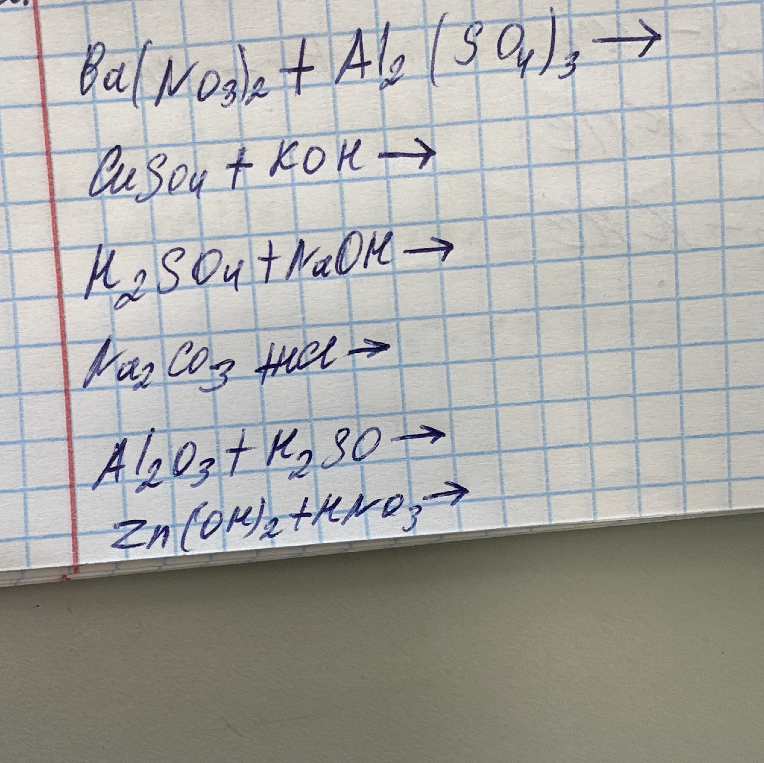 Ba(NO₃)₂ + Al₂(SO₄)₃ →
CuSO₄ + KOH →
H₂SO₄ + NaOH →
Na₂CO₃ + HCl →
Al₂O₃ + H₂SO →
Zn(OH)₂ + HNO₃ →